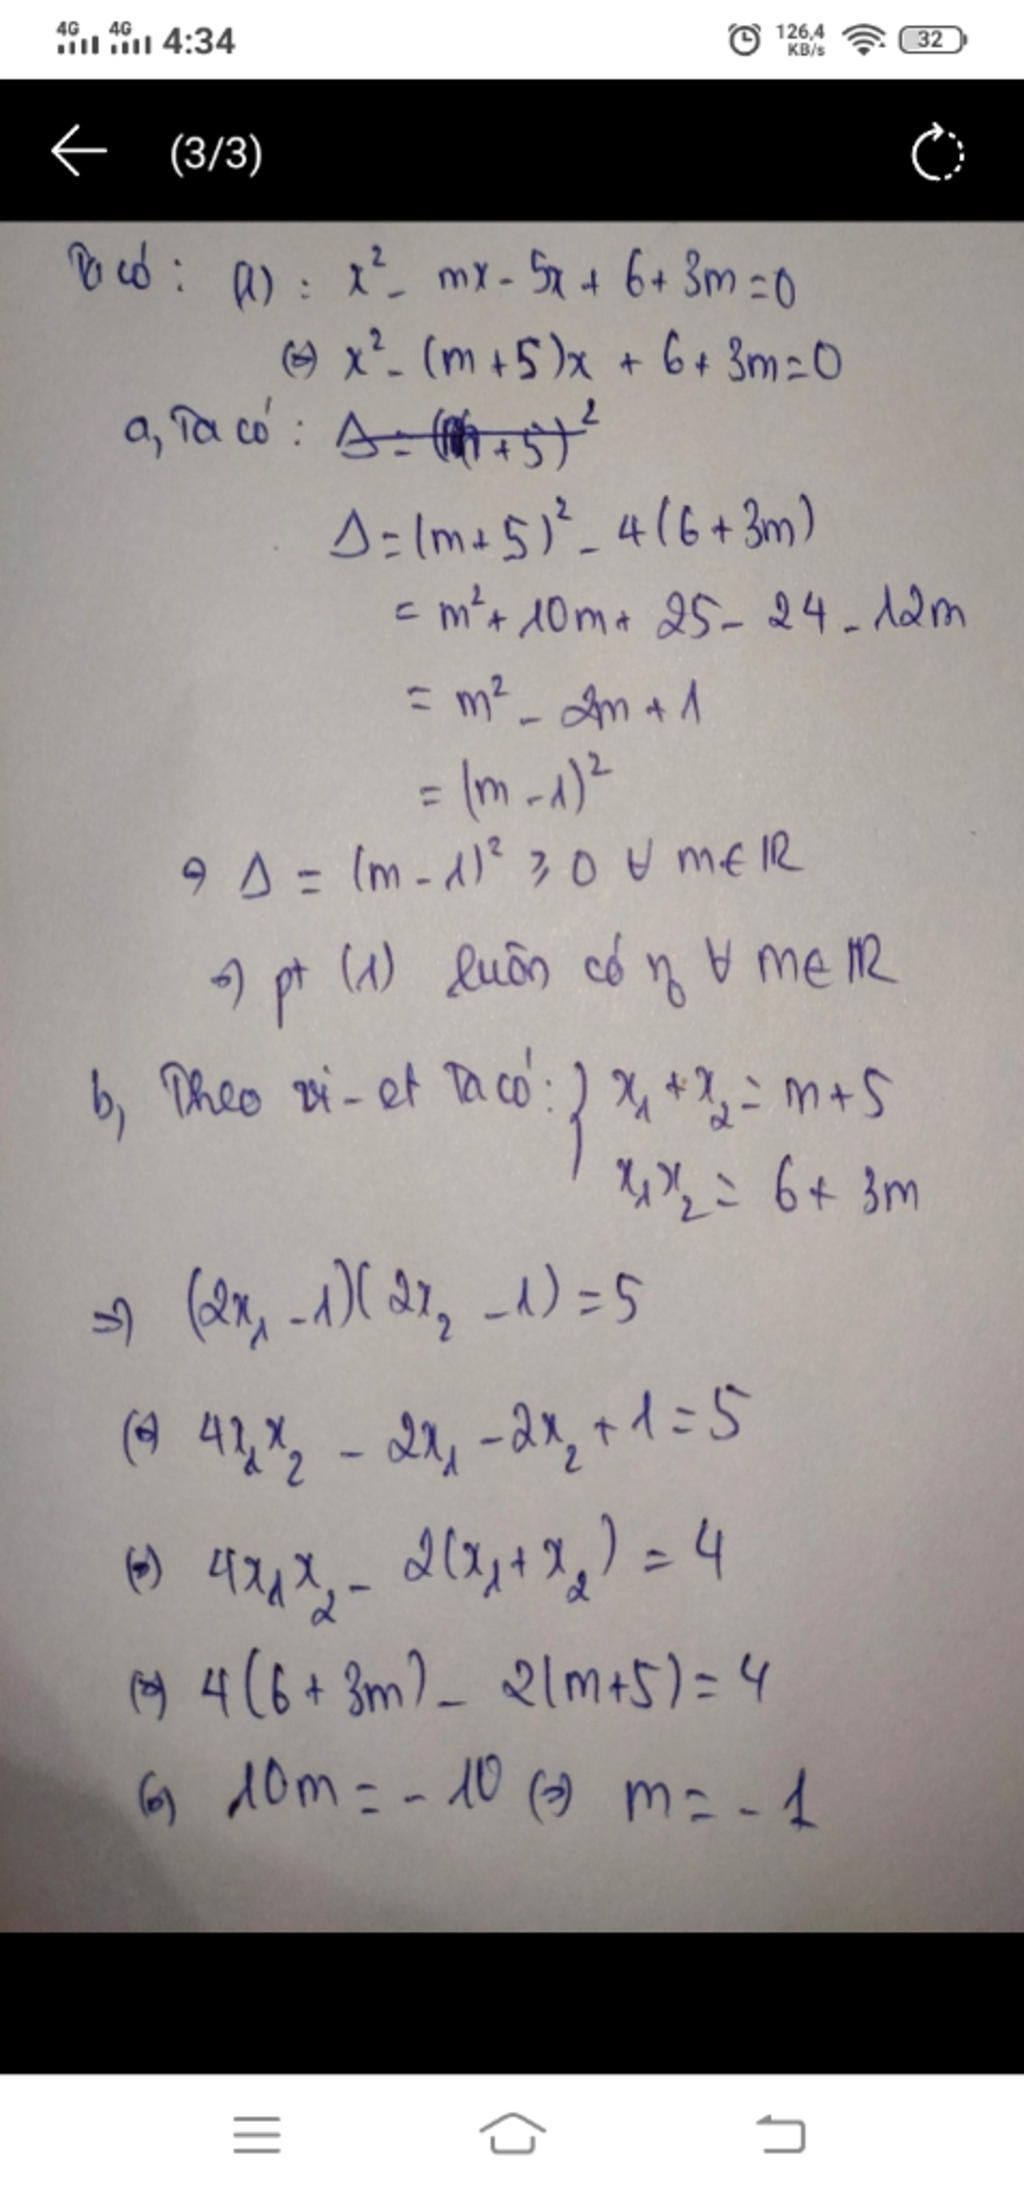 4G 4G 4:34 126,4 KB/s 32
(3/3)
Ta có: (1): x² - mx - 5x + 6 + 3m = 0
(=) x² - (m + 5)x + 6 + 3m = 0
a, Ta có: Δ = (m + 5)²
Δ = (m + 5)² - 4(6 + 3m)
= m² + 10m + 25 - 24 - 12m
= m² - 2m + 1
= (m - 1)²
=) Δ = (m - 1)² ≥ 0 ∀ m ∈ ℝ
=) pt (1) luôn có n₀ ∀ m ∈ ℝ
b, Theo vi-et Ta có: } x₁ + x₂ = m + 5
x₁x₂ = 6 + 3m
=) (2x₁ - 1)(2x₂ - 1) = 5
(=) 4x₁x₂ - 2x₁ - 2x₂ + 1 = 5
(=) 4x₁x₂ - 2(x₁ + x₂) = 4
(=) 4(6 + 3m) - 2(m + 5) = 4
(=) 10m = - 10 (=) m = - 1